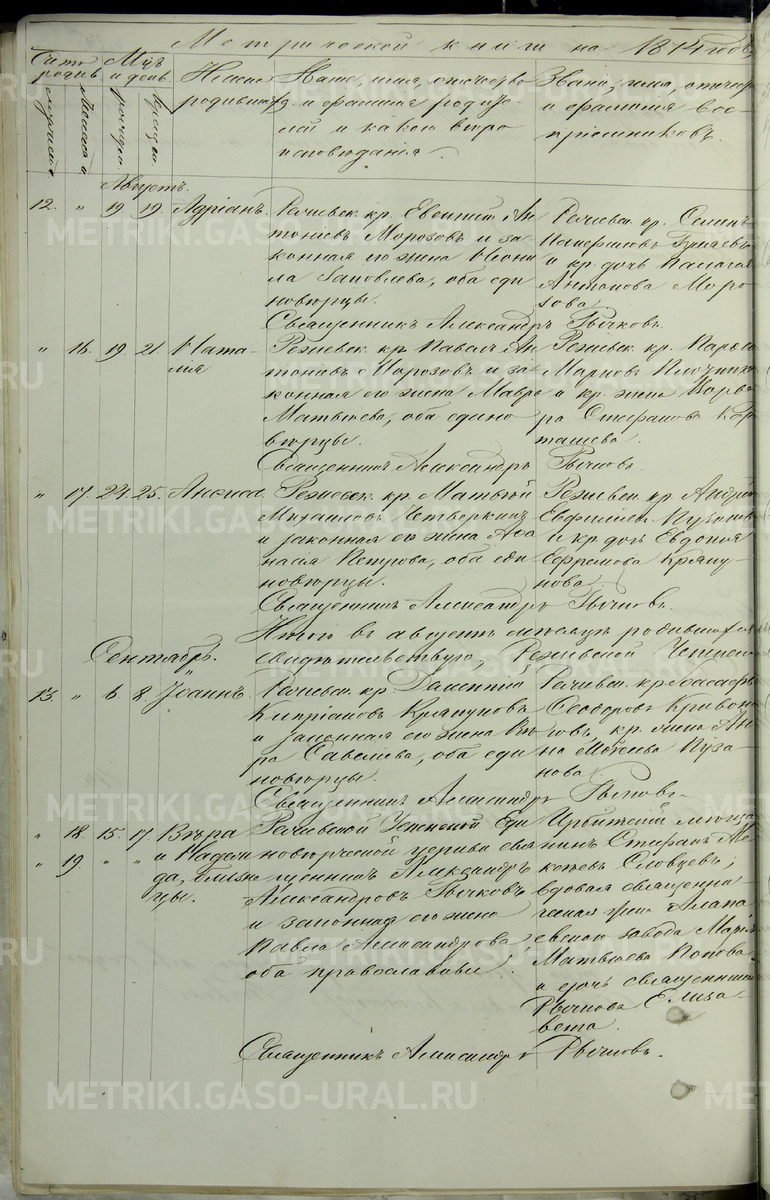 Метрической книги на 1874 годъ
Счетъ родив. Мцъ и день. Имена родивш. Званіе, имя, отчество и фамилія родителей и какого вѣроисповѣданія. Званіе, имя, отчество и фамилія воспріемниковъ.
Августъ.
12. " 19 19. Адріанъ.
Режевск. кр. Евентій Ан
тоніевъ Морозовъ и за
конная его жена
Яковлева, оба еди
новѣрцы.
Режевск. кр. Семенъ
Памфиловъ
и кр. дочь Палагея
Антонова Моро
зова.
Священникъ Александръ Рычковъ.
" 16. 19 21. Ната
лія
Режевск. кр. Павелъ Ан
тоніевъ Морозовъ и за
конная его жена Мавра
Матвѣева, оба едино
вѣрцы.
Режевск. кр.
Марковъ
и кр. жена Варва
ра Стефанова Кар
ташева.
Священникъ Александръ Рычковъ.
" 17. 24. 25. Анфиса.
Режевск. кр. Матвѣй
Михаиловъ Четверкинъ
и законная его жена Аѳа
насія Петрова, оба еди
новѣрцы.
Режевск. кр. Андрей
Евфиміевъ Пузановъ
и кр. дочь Евдокія
Ефремова Кряпу
нова.
Священникъ Александръ Рычковъ.
Итого въ августѣ мѣсяцѣ родившихся
свидѣтельствую, Режевской
Сентябрь.
13. " 6. 8. Іоаннъ.
Режевск. кр. Дометій
Кипріановъ Кряпуновъ
и законная его жена Вѣ
ра Савельева, оба еди
новѣрцы.
Режевск. кр. Іоасафъ
Ѳеодоровъ Кривоно
говъ, кр. жена Ан
на Моѵсеева Пуза
нова.
Священникъ Александръ Рычковъ.
" 18. 15. 17. Вѣра
" 19 " " и Надеж
да, близне
цы.
Режевской Успенской Еди
новѣрческой церкви свя
щенникъ Александръ
Александровъ Рычковъ
и законная его жена
Павла Александрова
оба православные.
Ирбитскій мѣща
нинъ Стефанъ
Словцевъ;
вдовая священни
ческая жена Алапа
евскаго завода Марія
Матвѣева Попова
и дочь священника
Рычкова Елиза
вета.
Священникъ Александръ Рычковъ.
METRIKI.GASO-URAL.RU